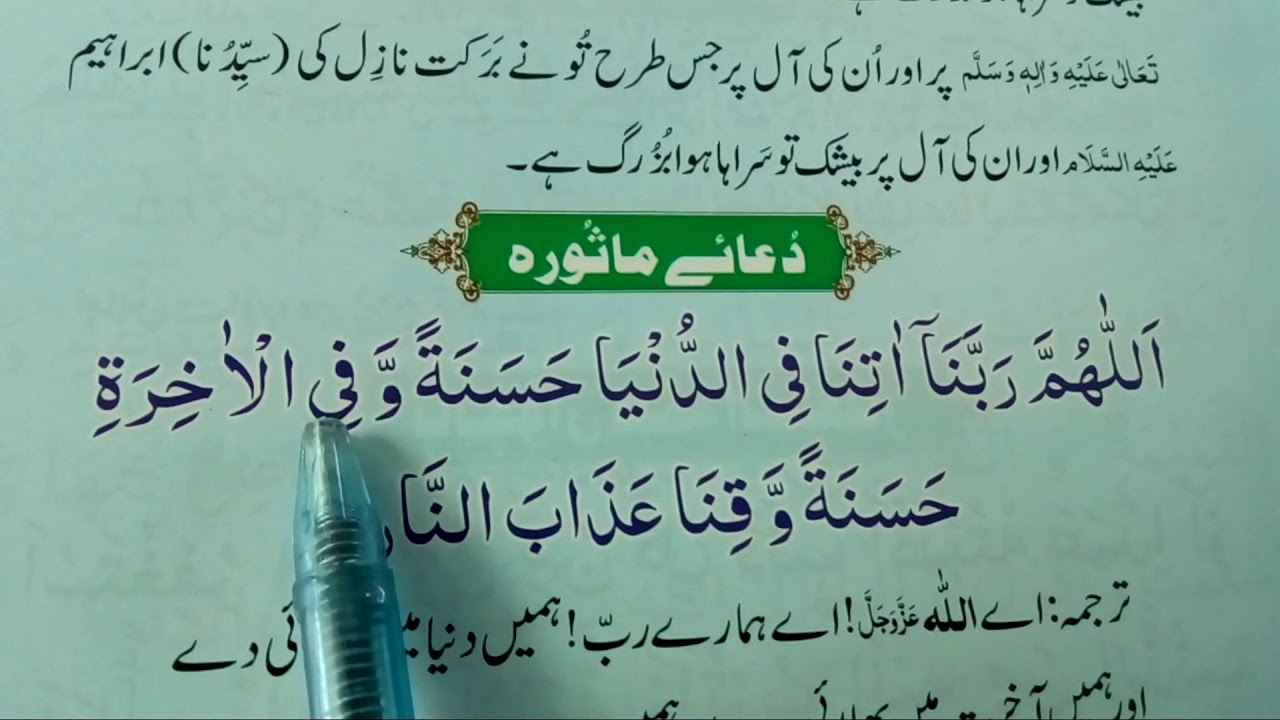 تَعَالٰی عَلَیْہِ وَاٰلِہٖ وَسَلَّم پر اور اُن کی آل پر جس طرح تُو نے بَرَکت نازِل کی (سیِّدُنا) ابراہیم
عَلَیْہِ السَّلَام اور ان کی آل پر بیشک تو سَراہا ہوا بُزُرگ ہے۔
دُعائے ماثُورہ
اَللّٰهُمَّ رَبَّنَآ اٰتِنَا فِی الدُّنْیَا حَسَنَةً وَّ فِی الْاٰخِرَةِ
حَسَنَةً وَّ قِنَا عَذَابَ النَّار
ترجمہ: اے اللّٰہ عَزَّوَجَلَّ! اے ہمارے ربّ! ہمیں دنیا دے
اور ہمیں